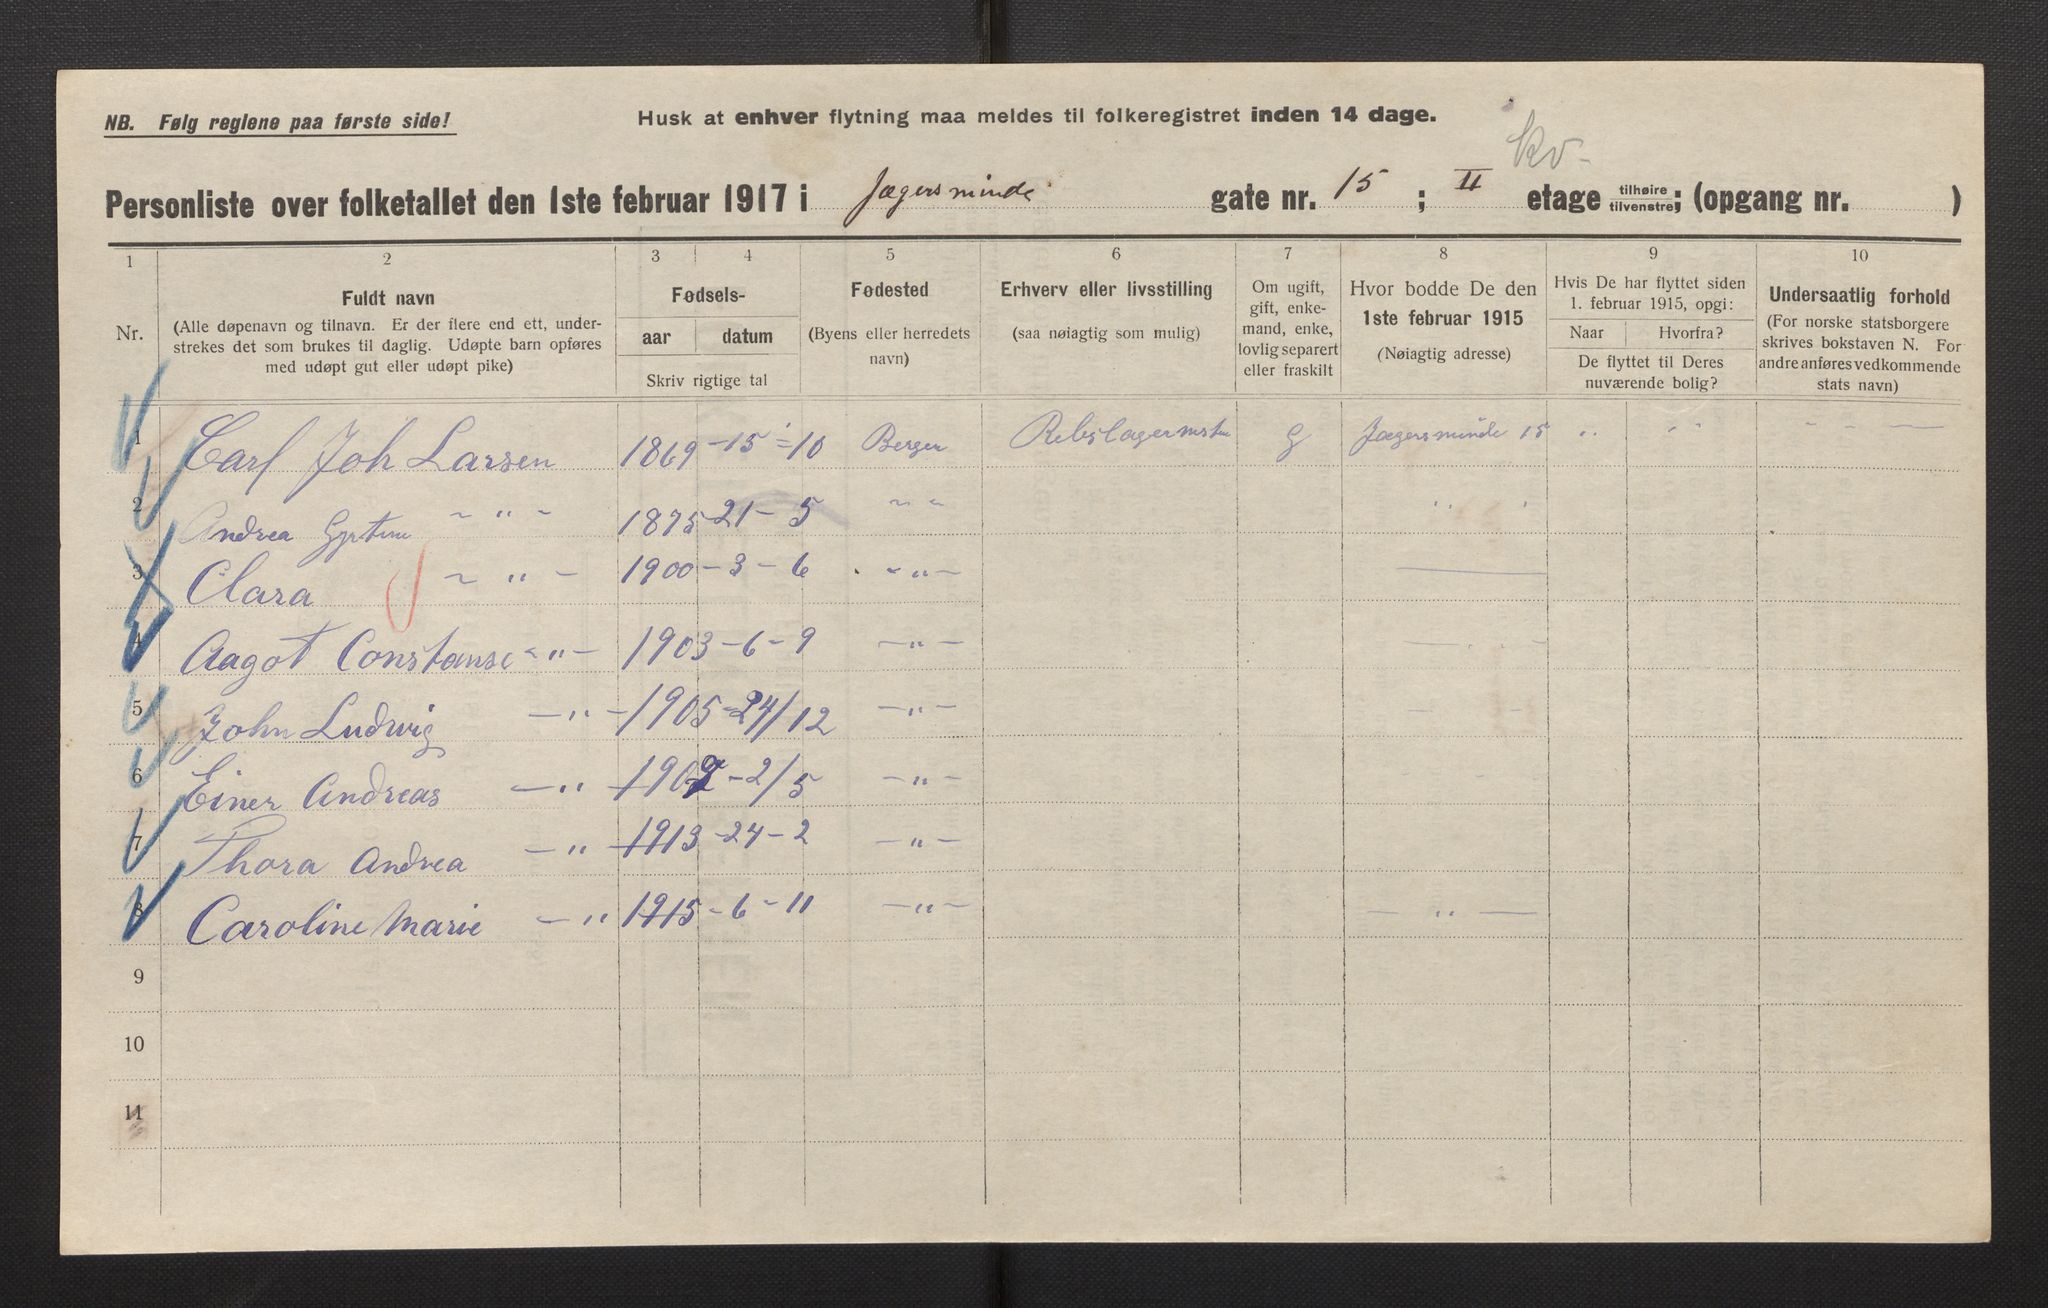 NB. Følg reglene paa første side!
Husk at enhver flytning maa meldes til folkeregistret inden 14 dage.
kv-
Personliste over folketallet den 1ste februar 1917 i Jægersminde gate nr. 15; II etage tilhøire tilvenstre; (opgang nr. )
1 2 3 4 5 6 7 8 9 10
Nr.
Fuldt navn
(Alle døpenavn og tilnavn. Er der flere end ett, under-
strekes det som brukes til daglig. Udøpte barn opføres
med udøpt gut eller udøpt pike)
Fødsels-
aar datum
Skriv rigtige tal
Fødested
(Byens eller herredets
navn)
Erhverv eller livsstilling
(saa nøiagtig som mulig)
Om ugift,
gift, enke-
mand, enke,
lovlig separert
eller fraskilt
Hvor bodde De den
1ste februar 1915
(Nøiagtig adresse)
Hvis De har flyttet siden
1. februar 1915, opgi:
Naar Hvorfra?
De flyttet til Deres
nuværende bolig?
Undersaatlig forhold
(For norske statsborgere
skrives bokstaven N. For
andre anføres vedkommende
stats navn)
1 Carl Joh Larsen 1869 - 15 - 10 Bergen G Jægersminde 15 " " - - -
2 Andrea - " - 1875 - 21 - 5 " "
3 Clara - " - 1900 - 3 - 6 - " -
4 Aagot Constanse - " - 1903 - 6 - 9 - " -
5 John Ludwig - " - 1905 - 24/12 - " -
6 Einer Andreas - " - - 2/5 - " -
7 Thora Andrea - " - 1913 - 24 - 2 - " -
8 Caroline Marie - " 1915 - 6 - 11 - " - - " -
9
10
11